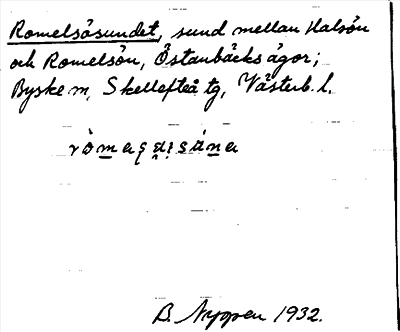 Romelsösundet, sund mellan Halsön
och Romelsön, Östanbäcks ägor;
Byske sn, Skellefteå tg, Västerb. l.
B. Nygren 1932.